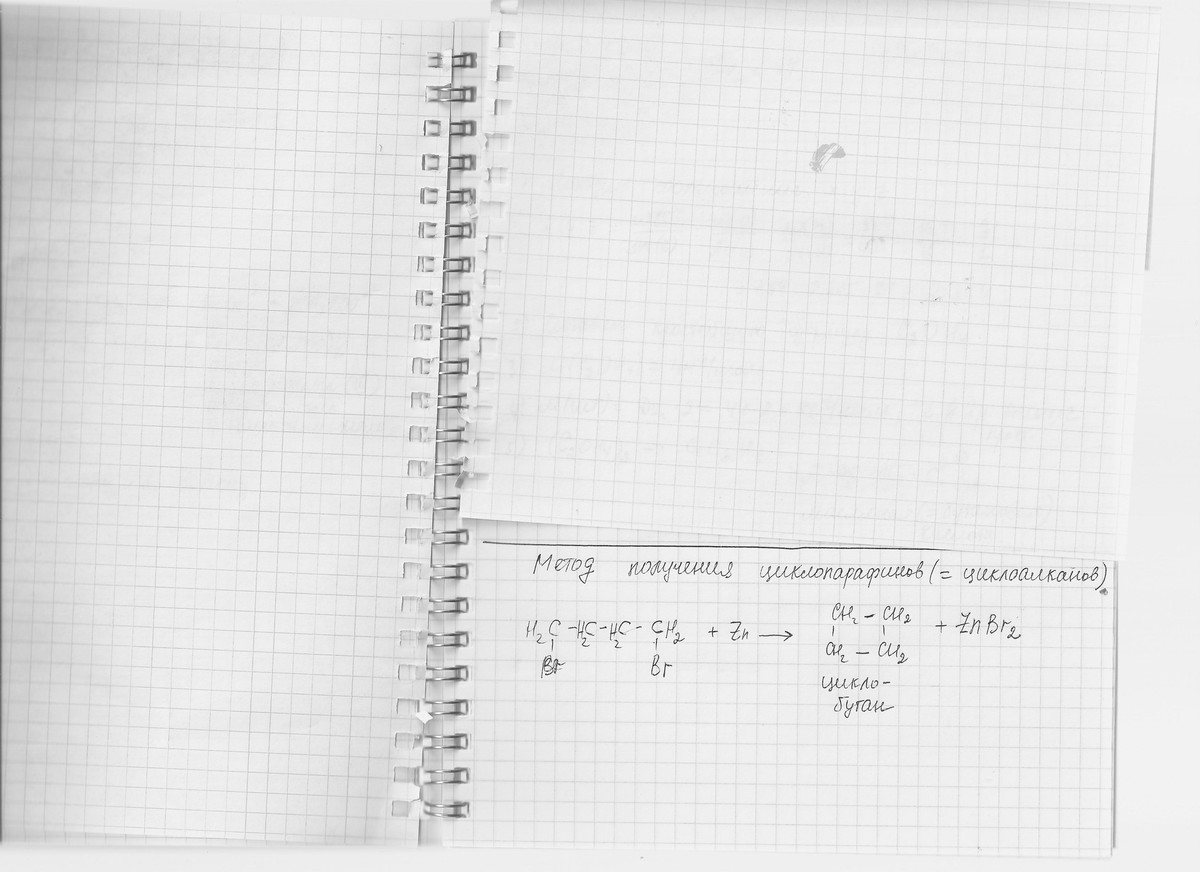 Метод получения циклопарафинов (= циклоалканов)
CH₂ – CH₂
H₂C – H₂C – H₂C – CH₂ + Zn → + ZnBr₂
CH₂ – CH₂
Br Br
цикло-
бутан